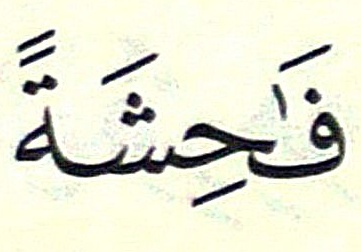 فَـٰحِشَةً